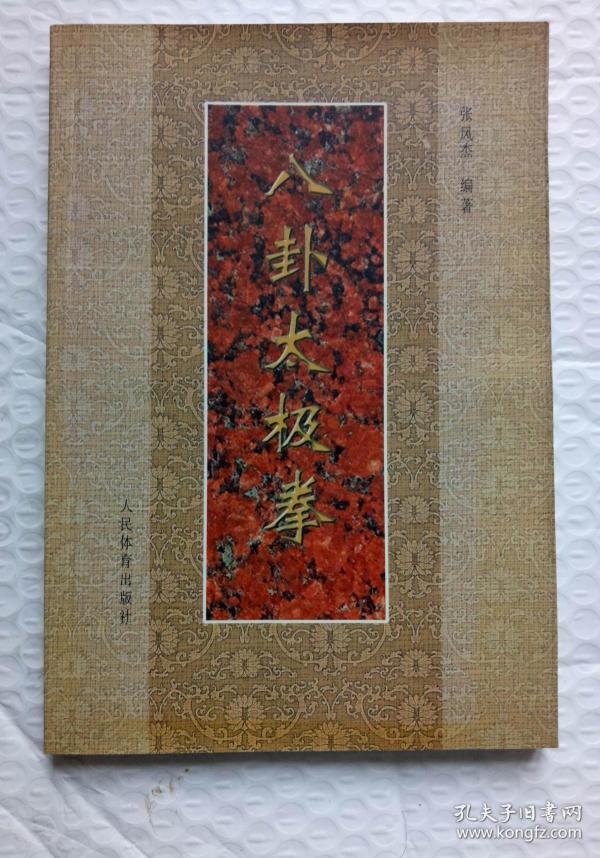 张凤杰 编著
八卦太极拳
人民体育出版社
孔夫子旧书网
www.kongfz.com